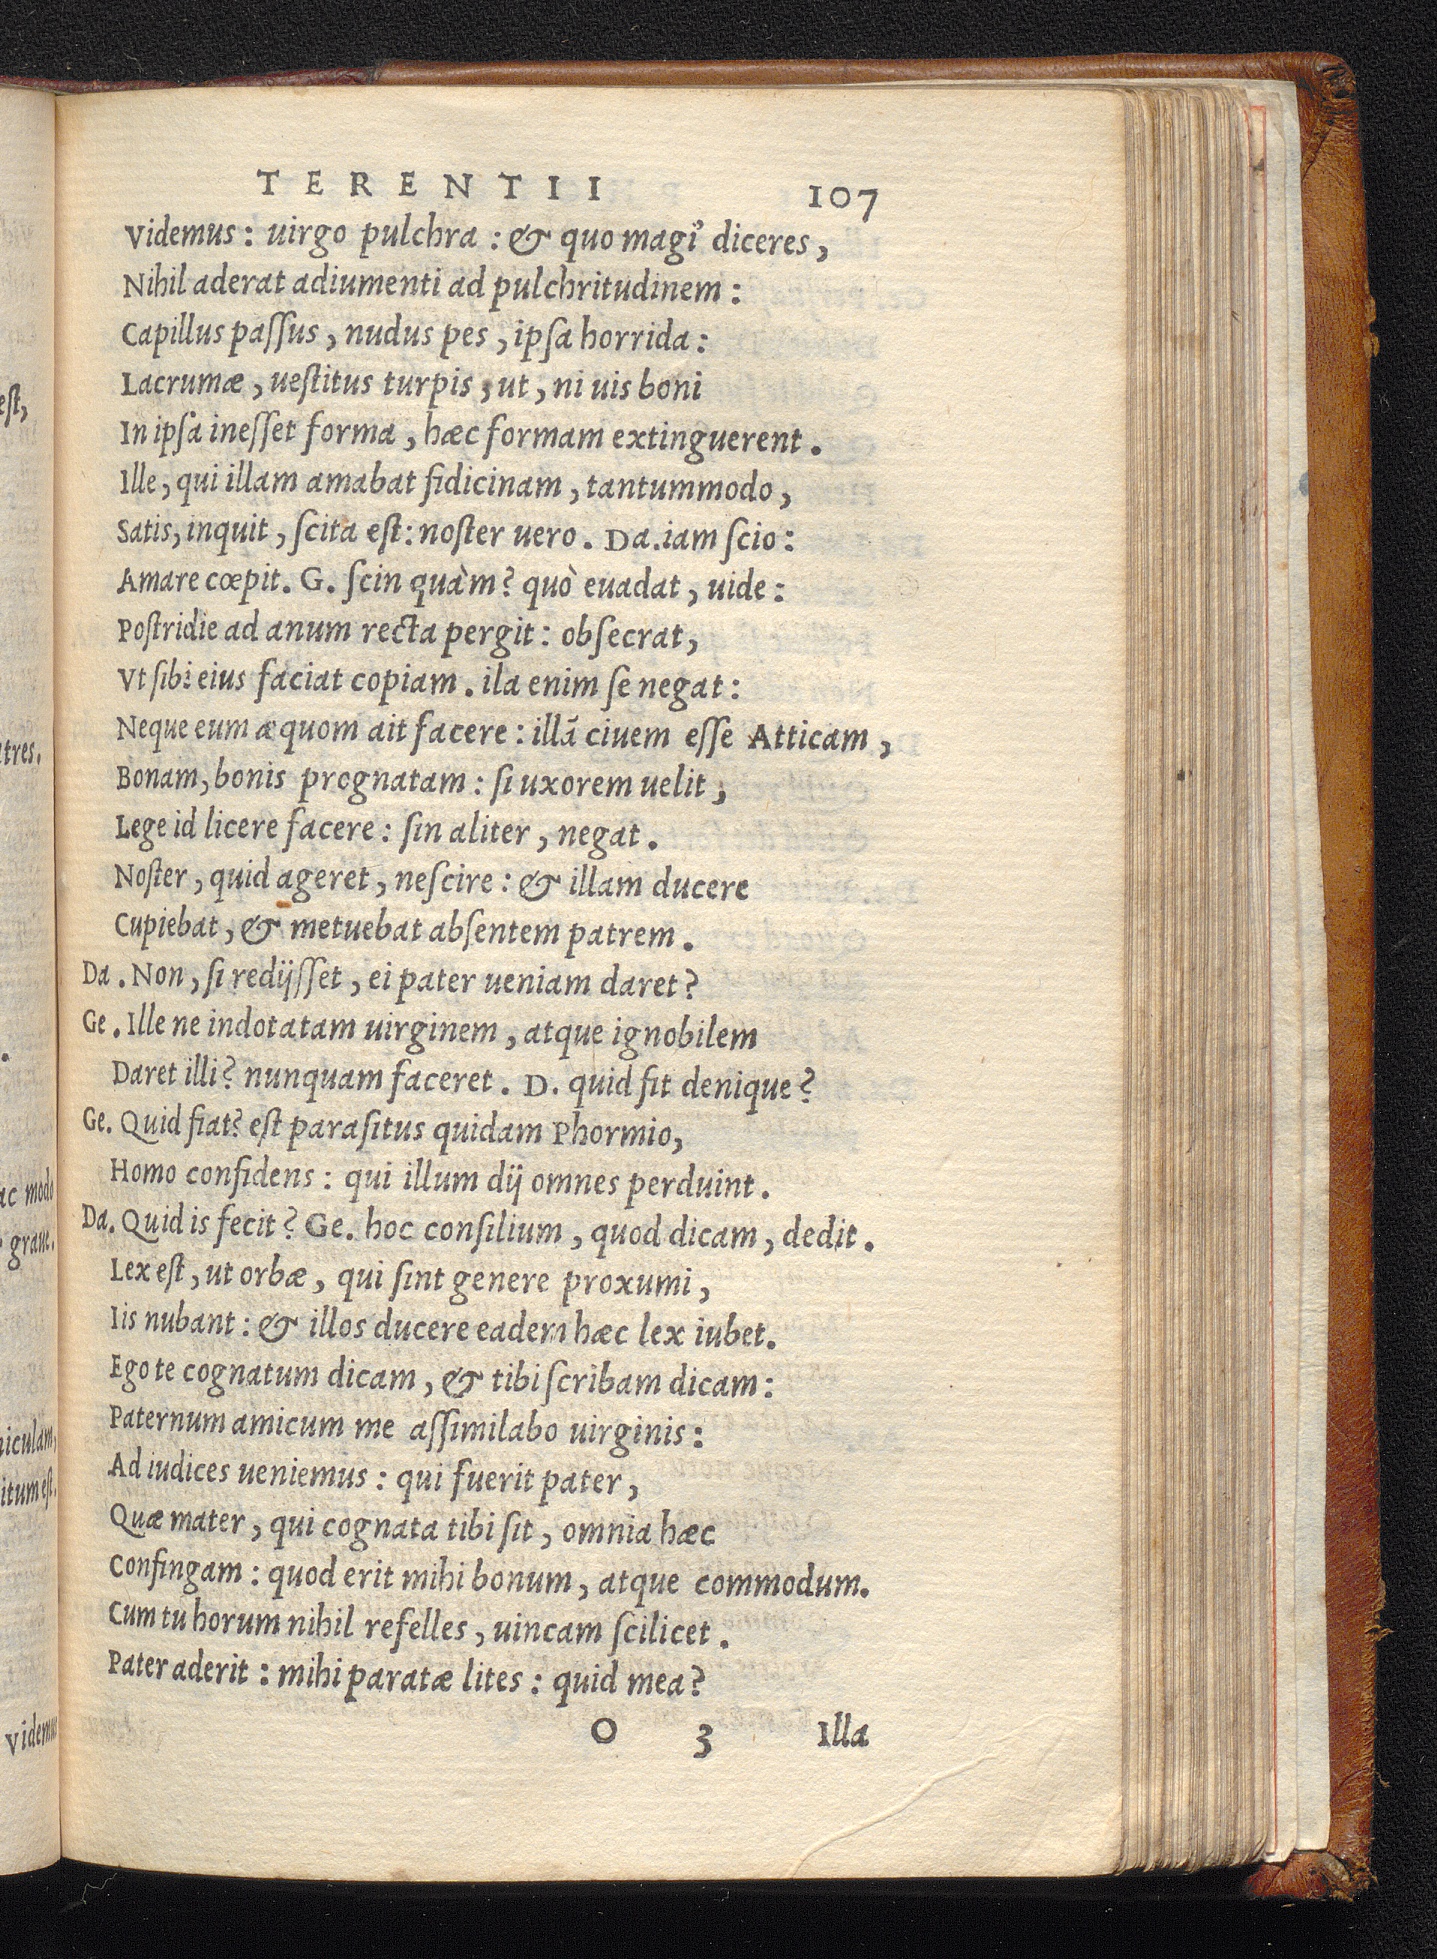 TERENTII 107
Videmus: uirgo pulchra: & quo magi' diceres,
Nihil aderat adiumenti ad pulchritudinem:
Capillus paſſus, nudus pes, ipſa horrida:
Lacrumæ, ueſtitus turpis, ut, ni uis boni
In ipſa ineſſet forma, hæc formam extinguerent.
Ille, qui illam amabat fidicinam, tantummodo,
Satis, inquit, ſcita eſt: noſter uero. Da. iam ſcio:
Amare cœpit. G. ſcin quàm? quò euadat, uide:
Poſtridie ad anum recta pergit: obſecrat,
Vt ſibi eius faciat copiam. ila enim ſe negat:
Neque eum æquom ait facere: illā ciuem eſſe Atticam,
Bonam, bonis prognatam: ſi uxorem uelit,
Lege id licere facere: ſin aliter, negat.
Noſter, quid ageret, neſcire: & illam ducere
Cupiebat, & metuebat abſentem patrem.
Da. Non, ſi redijſſet, ei pater ueniam daret?
Ge. Ille ne indotatam uirginem, atque ignobilem
Daret illi? nunquam faceret. D. quid fit denique?
Ge. Quid fiat? eſt paraſitus quidam Phormio,
Homo confidens: qui illum dij omnes perduint.
Da. Quid is fecit? Ge. hoc conſilium, quod dicam, dedit.
Lex eſt, ut orbæ, qui ſint genere proxumi,
Iis nubant: & illos ducere eadem hæc lex iubet.
Ego te cognatum dicam, & tibi ſcribam dicam:
Paternum amicum me aſſimilabo uirginis:
Ad iudices ueniemus: qui fuerit pater,
Quæ mater, qui cognata tibi ſit, omnia hæc
Confingam: quod erit mihi bonum, atque commodum.
Cum tu horum nihil refelles, uincam ſcilicet.
Pater aderit: mihi paratæ lites: quid mea?
O 3 Illa